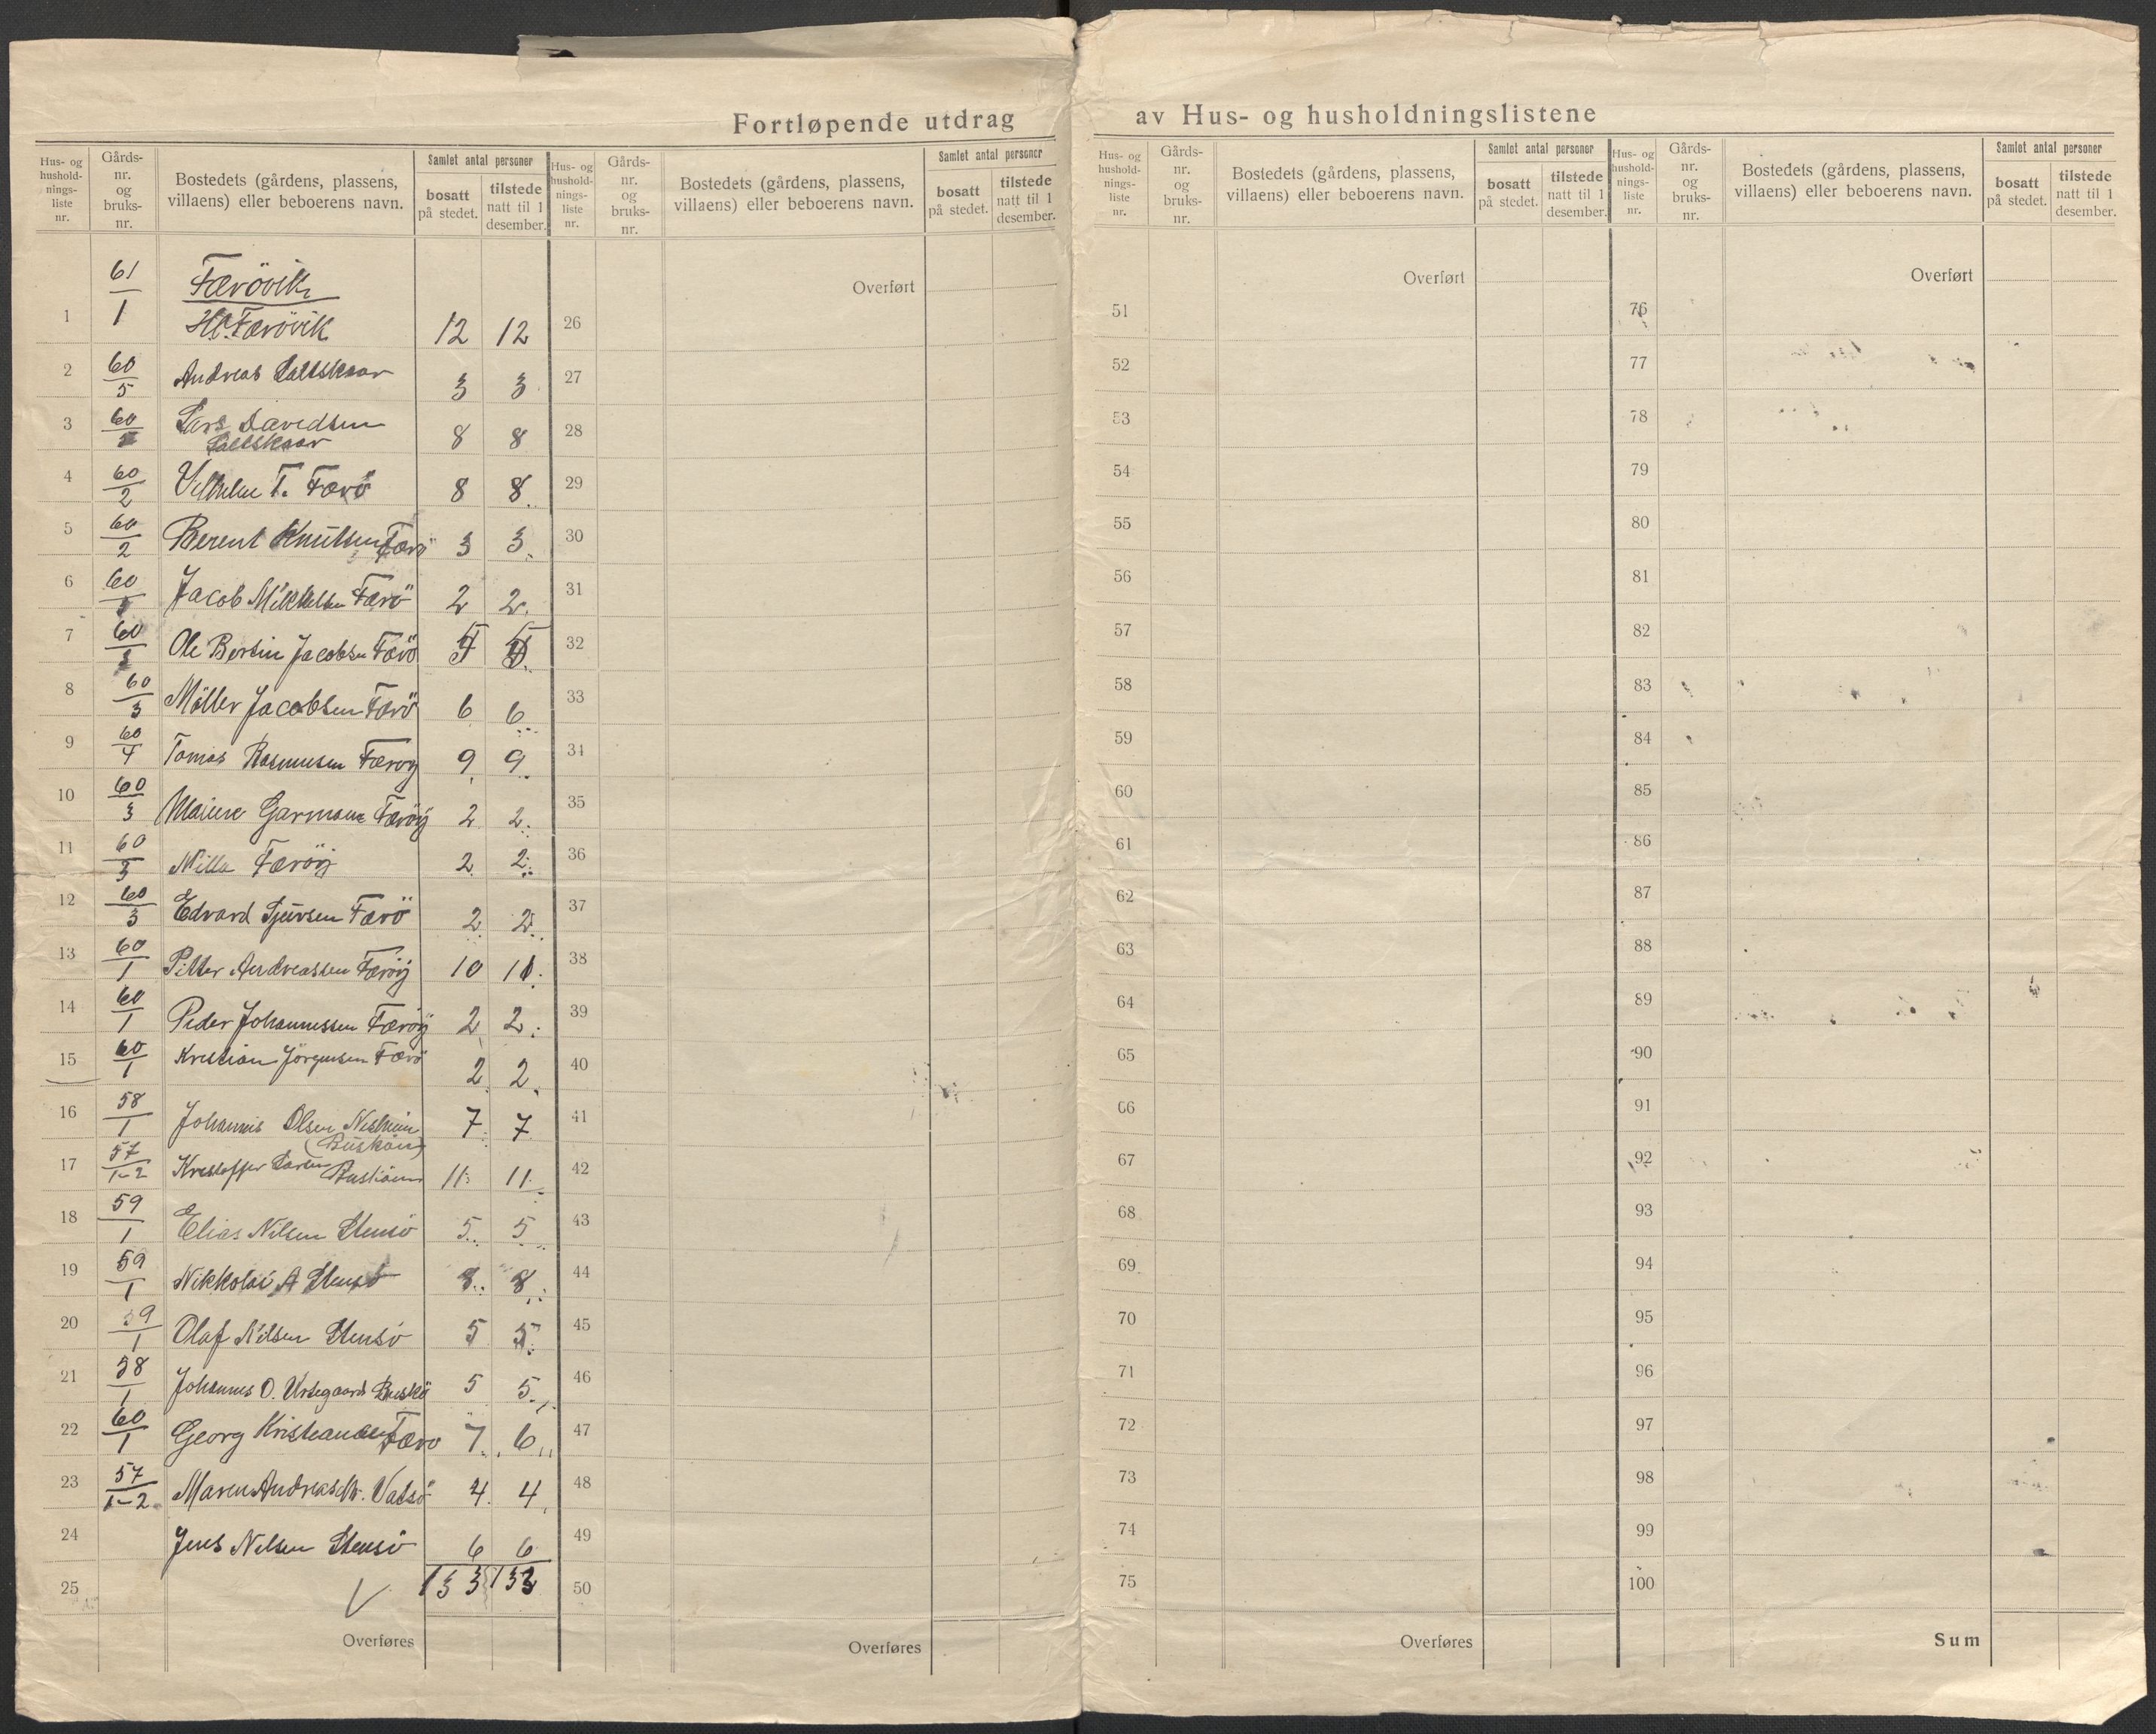 Fortløpende utdrag av Hus- og husholdningslistene
Hus- og hushold-nings-liste nr. Gårds-nr. og bruks-nr. Bostedets (gårdens, plassens, villaens) eller beboerens navn. Samlet antal personer bosatt på stedet. tilstede natt til 1 desember.
Hus- og hushold-nings-liste nr. Gårds-nr. og bruks-nr. Bostedets (gårdens, plassens, villaens) eller beboerens navn. Samlet antal personer bosatt på stedet. tilstede natt til 1 desember.
Hus- og hushold-nings-liste nr. Gårds-nr. og bruks-nr. Bostedets (gårdens, plassens, villaens) eller beboerens navn. Samlet antal personer bosatt på stedet. tilstede natt til 1 desember.
Hus- og hushold-nings-liste nr. Gårds-nr. og bruks-nr. Bostedets (gårdens, plassens, villaens) eller beboerens navn. Samlet antal personer bosatt på stedet. tilstede natt til 1 desember.
Færövik
1 61/1 Færövik 12 12
2 60/5 Andreas Saltskaar 3 3
3 60 Lars Davidsen 8 8
Saltskaar
4 60/2 Vilhelm T. Færö 8 8
5 60/2 Berent Knutsen Færö 3 3
6 60 Jacob Mikkelsen Færö 2 2
7 60 Ole Bertin Jacobsen Færö
8 60/3 Möller Jacobsen Færö 6 6
9 60/4 Tomas Rasmussen Færöy 9 9
10 60/3 Garmann Færöy 2 2
11 60/3 Milla Færöy 2 2
12 60/3 Edvard Sjursen Færö 2 2
13 60/1 Pitter Andreassen Færöy 10
14 60/1 Peder Johannessen Færöy 2 2
15 60/1 Kristian Jörgensen Færö 2 2
16 58/1 Johannis Olsen 7 7
(Busköen)
17 57/1-2 Kristoffer Larsen Busköen 11 11
18 59/1 Elias Nilsen Stensö 5 5
19 59/1 Nikkolai A Stensö 8 8
20 59/1 Olaf Nilsen Stensö 5 5
21 58/1 Johannes O. Urdegaard Buskö 5 5
22 60/1 Georg Kristiansen Færö 7 6
23 57/1-2 Maren Andreasdtr. 4 4
24 Jens Nilsen Stensö 6 6
25 133 132
Overføres
Overført
26
27
28
29
30
31
32
33
34
35
36
37
38
39
40
41
42
43
44
45
46
47
48
49
50
Overføres
Overført
51
52
53
54
55
56
57
58
59
60
61
62
63
64
65
66
67
68
69
70
71
72
73
74
75
Overføres
Overført
76
77
78
79
80
81
82
83
84
85
86
87
88
89
90
91
92
93
94
95
96
97
98
99
100
Sum